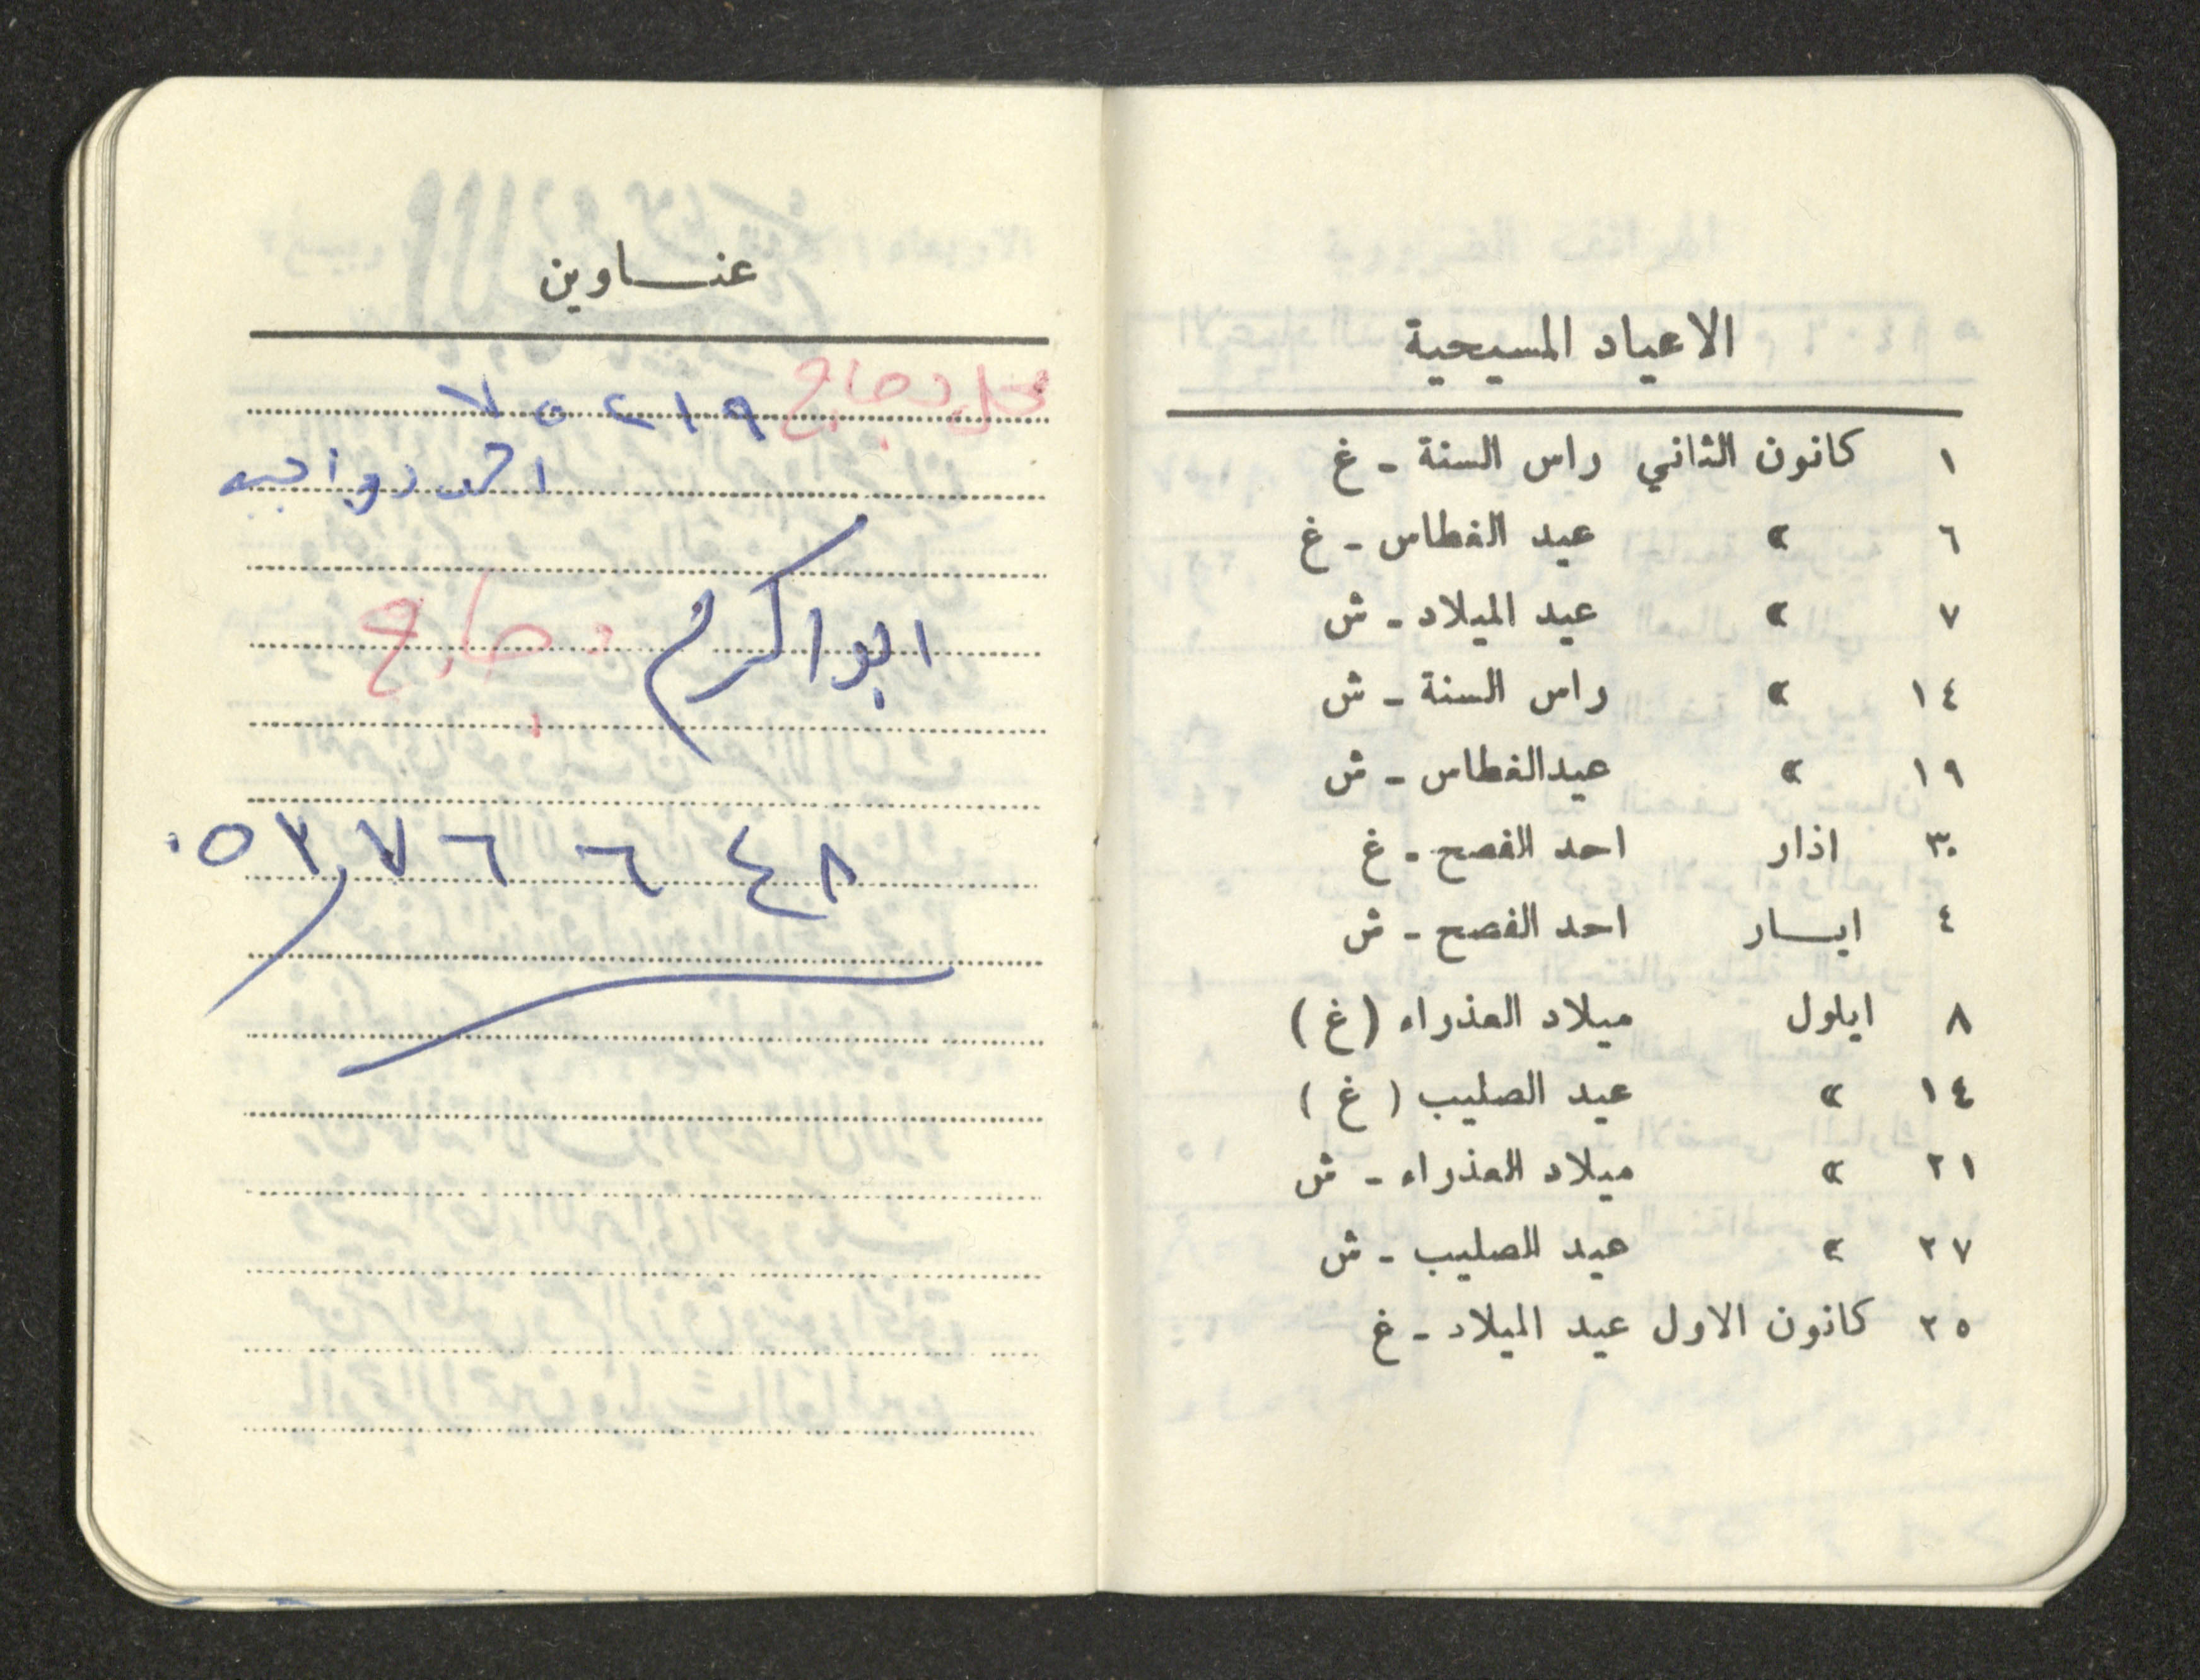 الاعياد المسيحية
١ كانون الثاني راس السنة - غ
٦ » عيد الغطاس - غ
٧ » عيد الميلاد - ش
١٤ » راس السنة - ش
١٩ » عيدالغطاس - ش
٣٠ اذار احد الفصح - غ
٤ ايـــار احد الفصح - ش
٨ ايلول ميلاد العذراء (غ)
١٤ » عيد الصليب (غ)
٢١ » ميلاد العذراء - ش
٢٧ » عيد الصليب - ش
٢٥ كانون الاول عيد الميلاد - غ
عنـــاوين
محل دجاج ٧٥٢١٩
احمد
ابو اكرم دجاج
٠٥٣٧٦٦٤٨